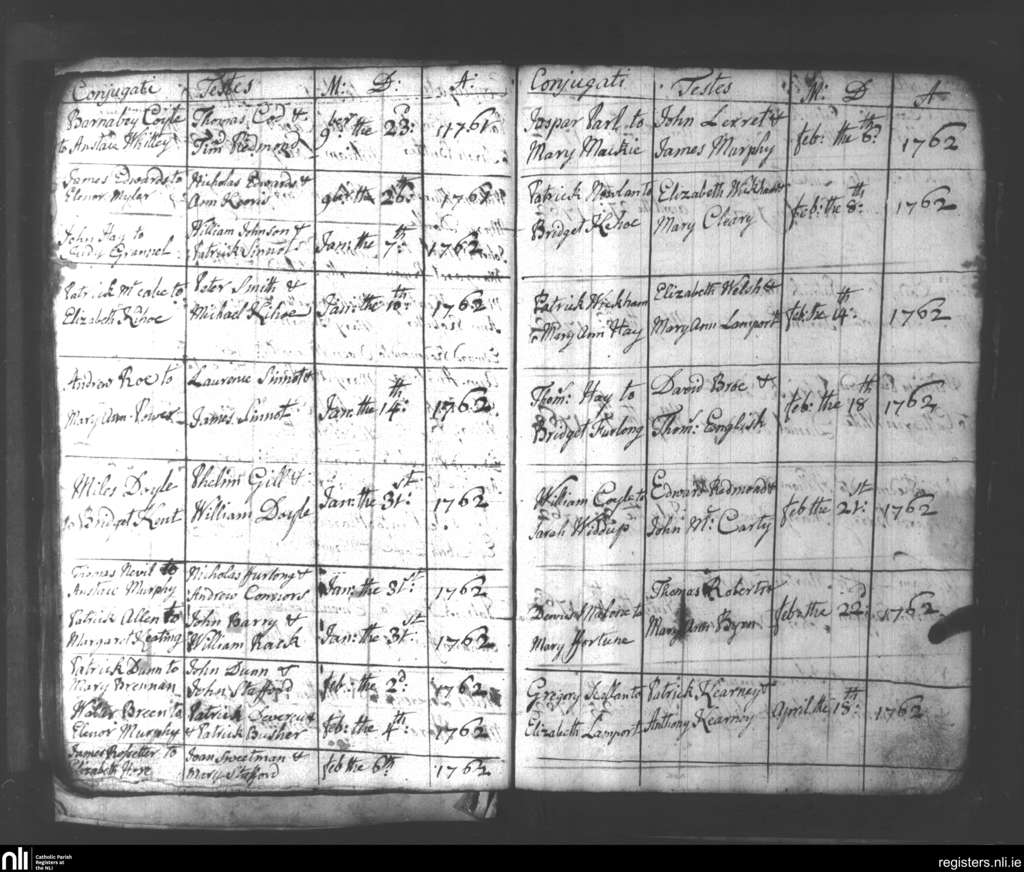 Conjugati Testes M: D: A:
Barnabey Coyle Thomas Cod &
to Anstace Whitley Tim Redmond 9ber the 23d: 1761
James Edwards to Nicholas Edwards &
Elenor Mylar Ann 9ber the 26th 1761
John Hay to William Johnson &
Grannel Patrick Sinnot Jan: the 7th: 1762
Patrick Mc cabe to Peter Smith &
Elizabeth Kehoe Michael Kehoe Jan: the 10th: 1762
Andrew Roe to Laurence Sinnot &
Mary Ann Power James Sinnot Jan: the 14th: 1762
Miles Doyle Phelim Gill &
to Bridget Kent William Doyle Jan: the 31st: 1762
Thomas Nevil to Nicholas ffurlong &
Anstace Murphy Andrew Connors Jan: the 31st 1762
Patrick Allen to John Barry &
Margaret Keating William Jan: the 31st 1762
Patrick Dunn to John Dunn &
Mary Brennan John Stafford feb: the 2d: 1762
Walter Breen to Patrick &
Elenor Murphy & Patrick Busher feb: the 4th 1762
James Rossetter to Joan Sweetman &
Elizabeth Hore Mary Stafford feb the 6th 1762
Conjugati Testes M: D A
Jaspar to John Lerret &
Mary Mackie James Murphy feb: the 6th: 1762
Patrick Nowlan to Elizabeth Wickham &
Bridget Kehoe Mary Cleary feb: the 8th: 1762
Patrick Wickham Elizabeth Welsh &
to Mary Ann Hay Mary Ann Lamport feb: the 14th: 1762
Thom: Hay to David Broe &
Bridget Furlong Thom: English feb: the 18th 1762
William Coyle to Edward Redmond &
Sarah John Mc: Carty feb the 21st: 1762
Denis Malone to Thomas Roberts
Mary fforlune Mary Ann Byrn feb: the 22d: 1762
Gregory Scallan to Patrick Kearney &
Elizabeth Lamport Anthony Kearney April the 18th: 1762
nli Catholic Parish
Registers at
the NLI
registers.nli.ie